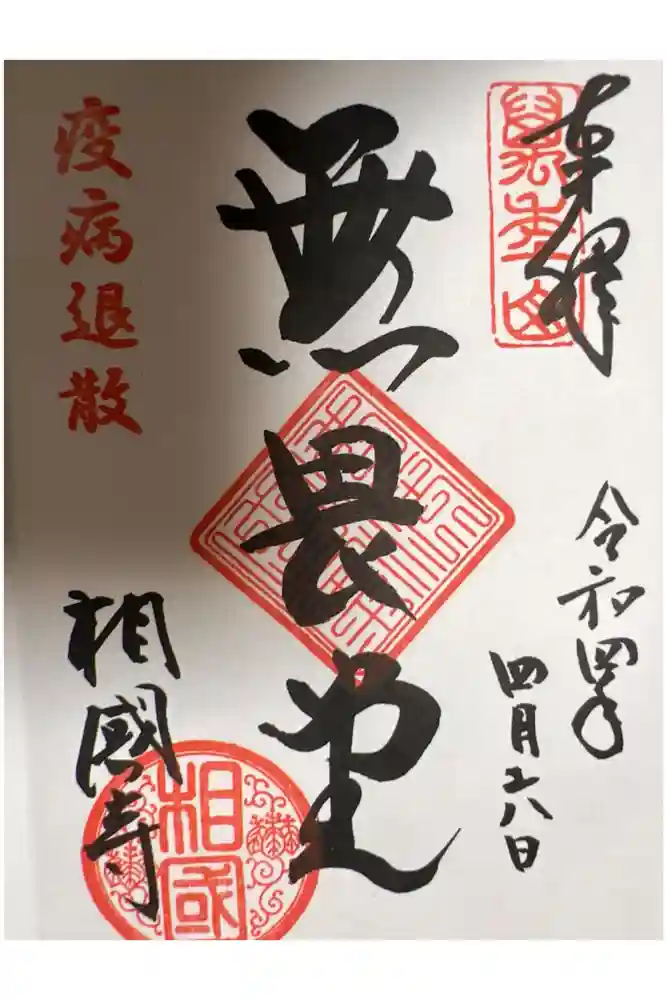 奉拝
萬年山
令和四年
四月二八日
無畏堂
疫病退散
相國寺
相國